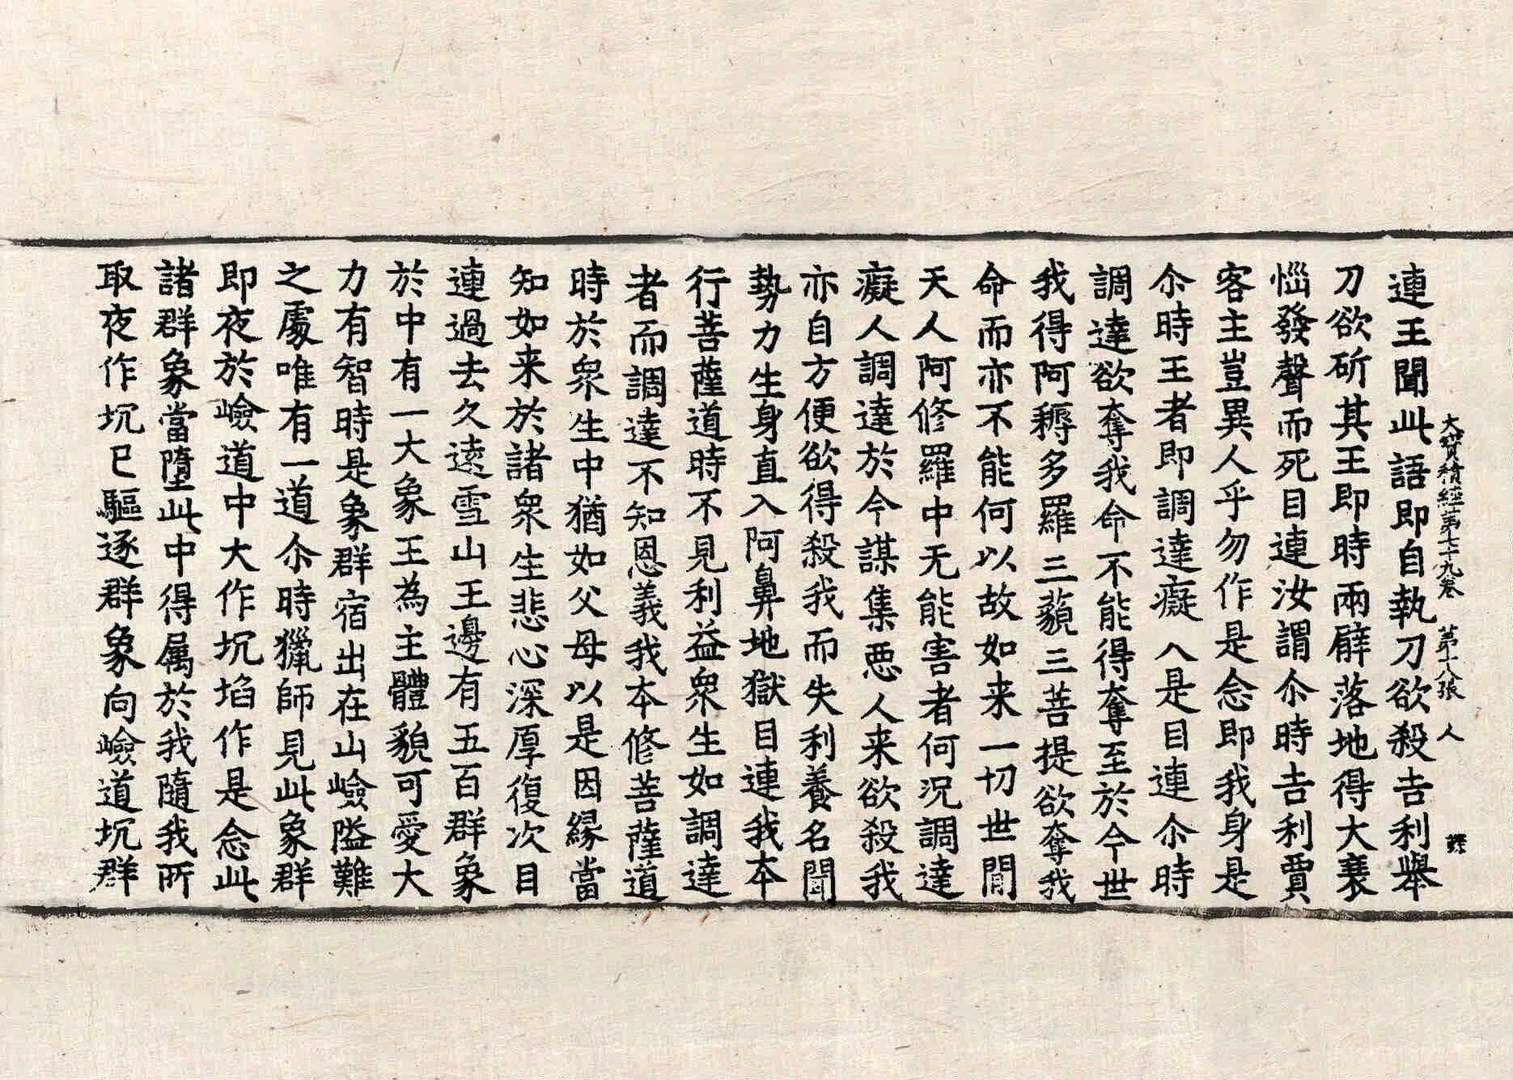 大寶積經第七十九卷　第十八張　人
連王聞此語即自執刀欲殺吉利舉
刀欲斫其王即時兩臂落地得大衰
惱發聲而死目連汝謂尒時吉利賈
客主豈異人乎勿作是念即我身是
尒時王者即調達癡人是目連尒時
調達欲奪我命不能得奪至於今世
我得阿耨多羅三藐三菩提欲奪我
命而亦不能何以故如来一切世間
天人阿修羅中无能害者何況調達
癡人調達於今謀集惡人来欲殺我
亦自方便欲得殺我而失利養名聞
勢力生身直入阿鼻地獄目連我本
行菩薩道時不見利益衆生如調達
者而調達不知恩義我本修菩薩道
時於衆生中猶如父母以是因緣當
知如来於諸衆生悲心深厚復次目
連過去久遠雪山王邊有五百群象
於中有一大象王為主體貌可愛大
力有智時是象群宿出在山嶮隘難
之處唯有一道尒時獵師見此象群
即夜於嶮道中大作坑埳作是念此
諸群象當墮此中得屬於我隨我所
取夜作坑已驅逐群象向嶮道坑群